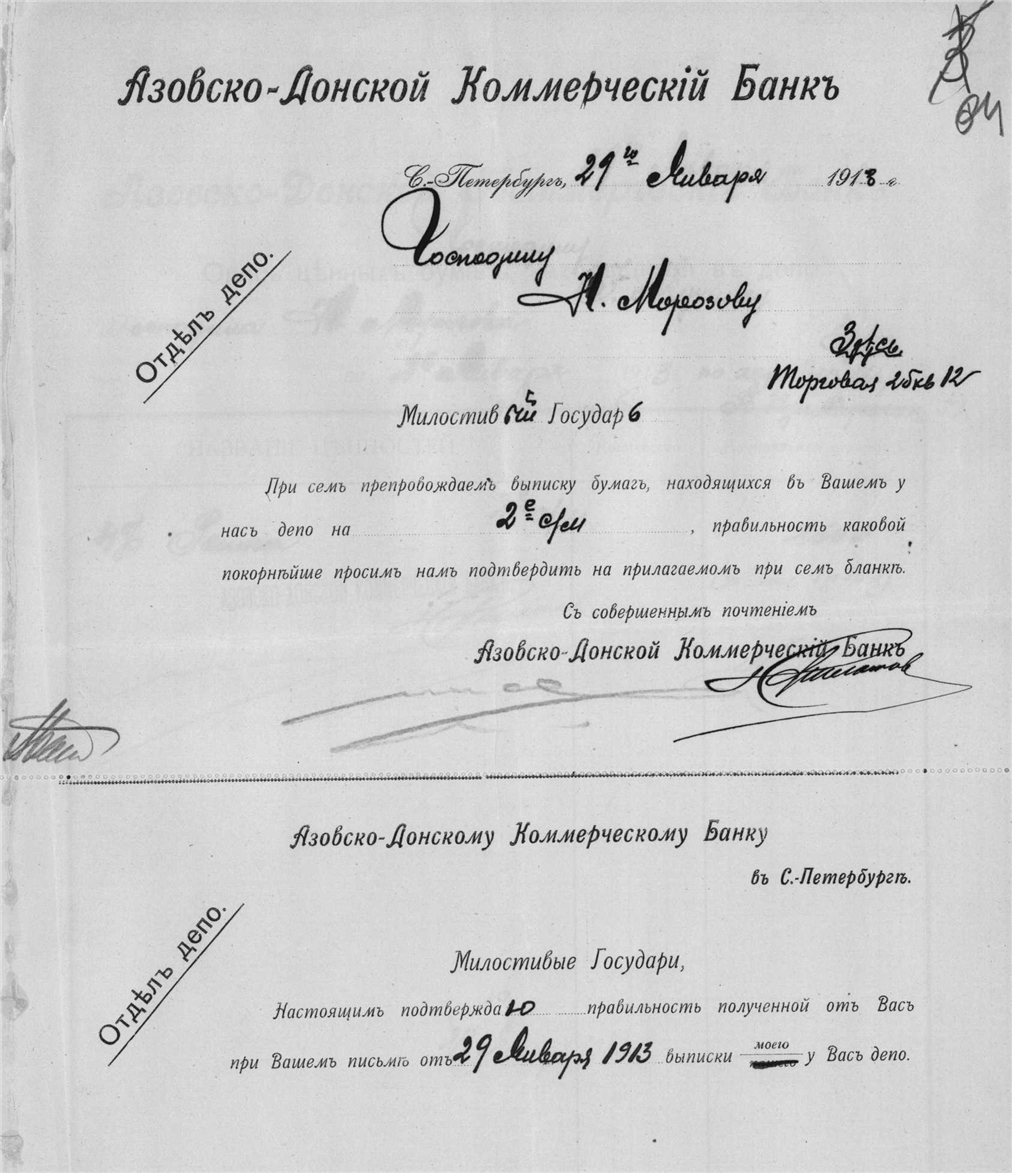 Азовско-Донской Коммерческій Банкъ
С.-Петербургъ, 29го Января 1913 г
Господину
Н. Морозову
Здѣсь
Торговая 2б кв 12
Отдѣлъ депо.
Милостивый Государь
При семъ препровождаемъ выписку бумагъ, находящихся въ Вашемъ у
насъ депо на 2е с/м , правильность каковой
покорнѣйше просимъ намъ подтвердить на прилагаемомъ при семъ бланкѣ.
Съ совершеннымъ почтеніемъ
Азовско-Донской Коммерческій Банкъ
Азовско-Донскому Коммерческому Банку
въ С.-Петербургѣ.
Отдѣлъ депо.
Милостивые Государи,
Настоящимъ подтверждаю правильность полученной отъ Васъ
при Вашемъ письмѣ отъ 29 Января 1913 выписки моего у Васъ депо.